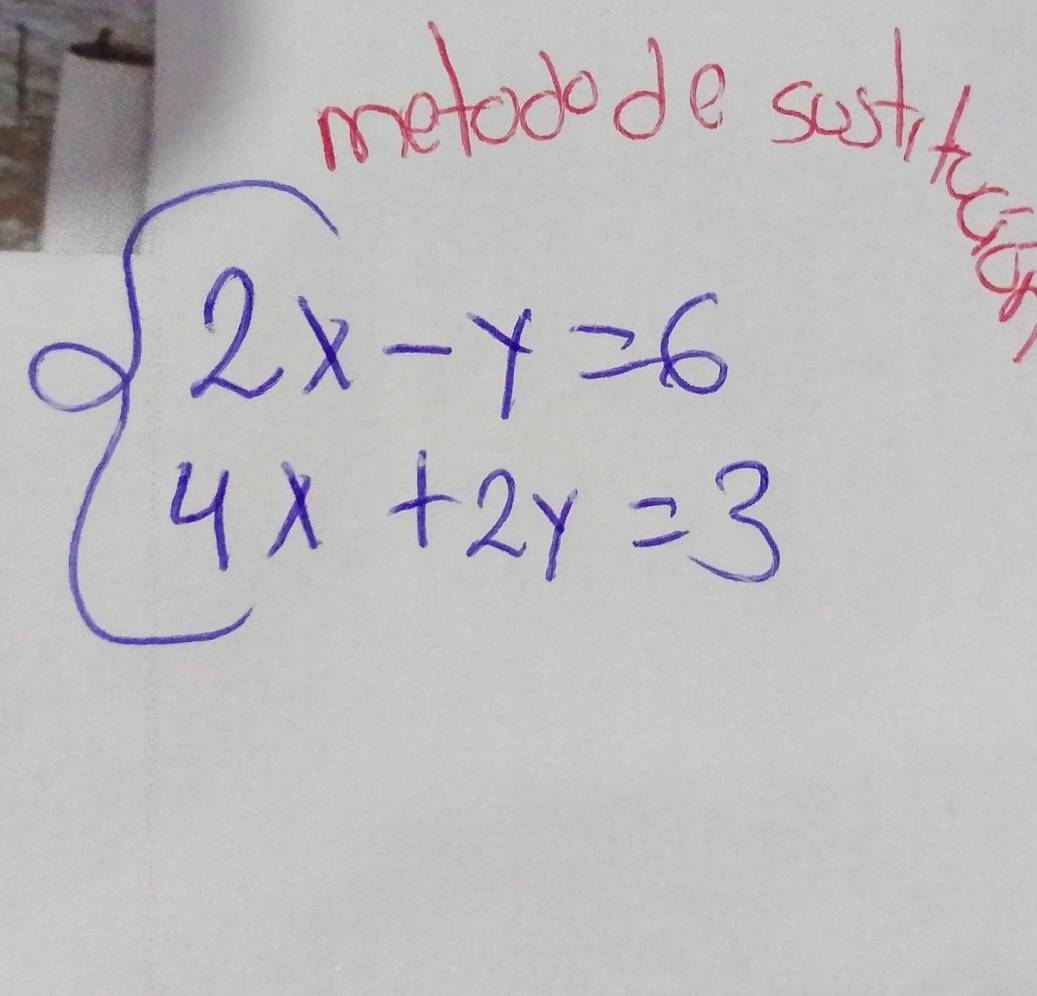 metodo de sustitución
2x - y = 6
4x + 2y = 3